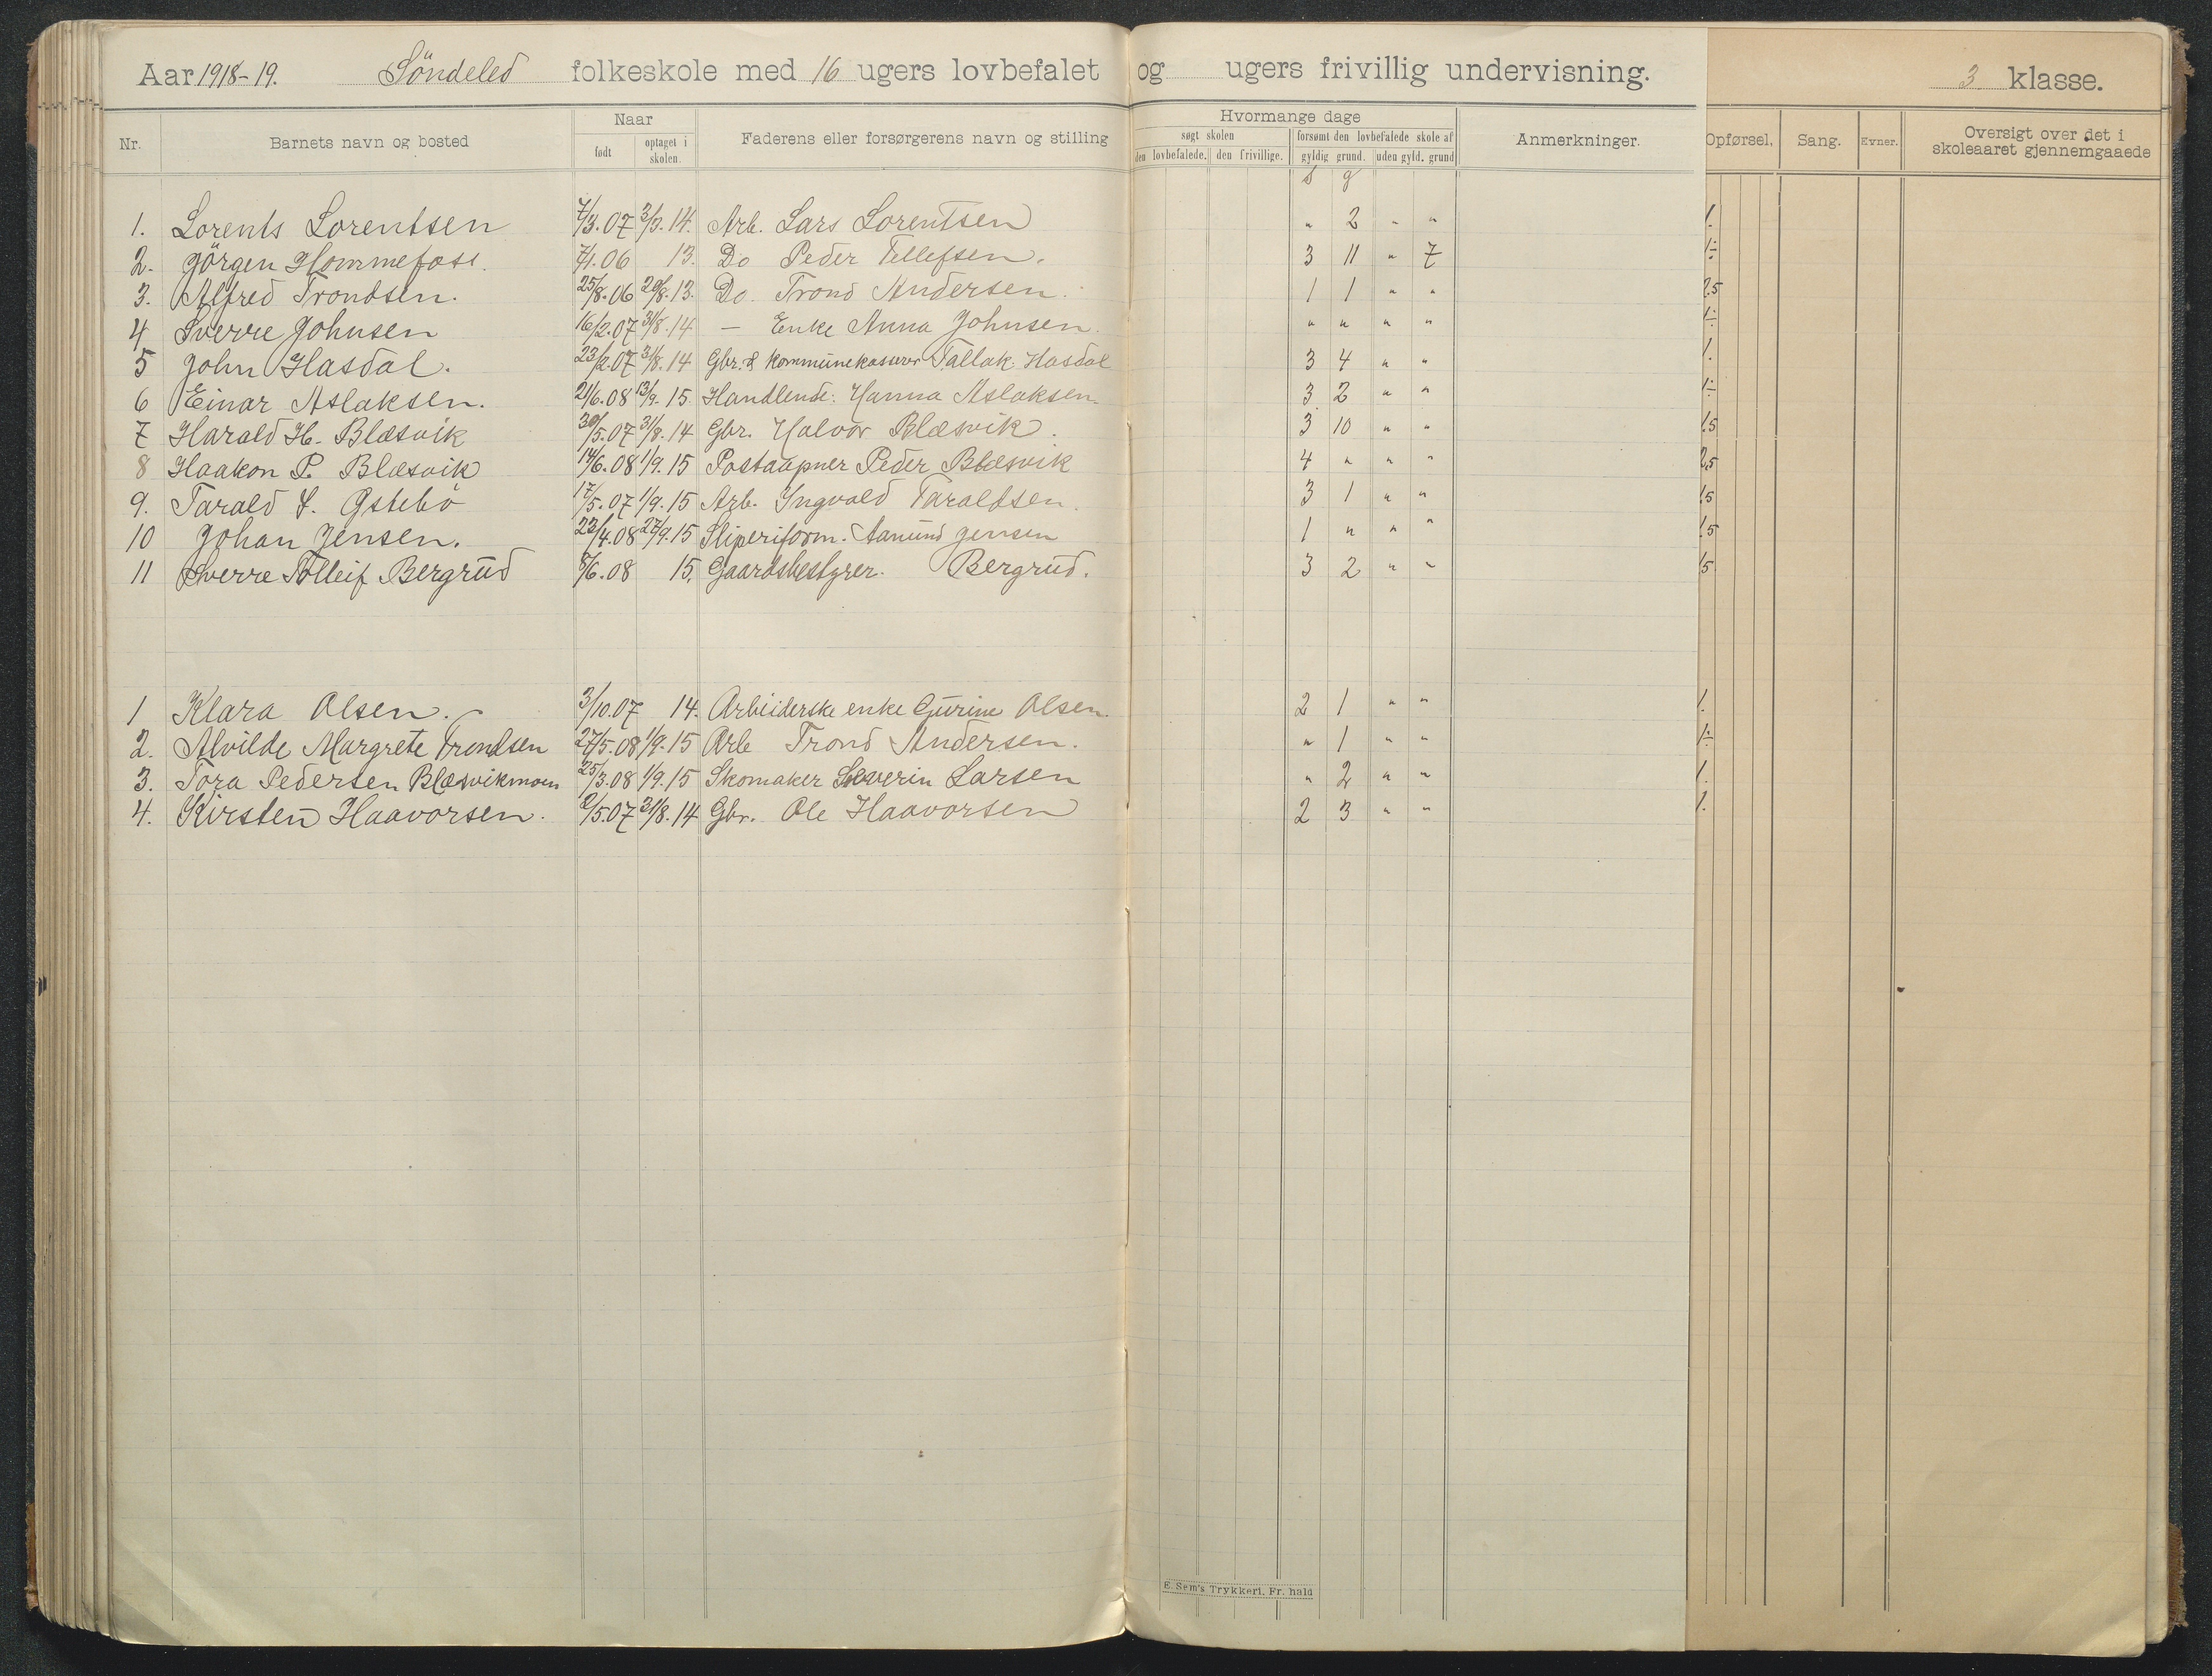 Aar 1918-19. Söndeled folkeskole med 16 ugers lovbefalet og ugers frivillig undervisning. 3 klasse.
Nr. Barnets navn og bosted Naar født optaget i skolen. Faderens eller forsørgerens navn og stilling Hvormange dage søgt skolen den lovbefalede. den frivillige. forsømt den lovbefalede skole af gyldig grund. uden gyld. grund Anmerkninger. Opførsel. Sang. Evner. Oversigt over det i skoleaaret gjennemgaaede
s g
1. Lorents Lorentsen 7/3.07 3/3.14. Arb. Lars Lorentsen " 2 " " 1.
2. Jörgen Hommefoss. 7/1.06 13. Do Peder Tellefsen. 3 11 " 7 1÷
3. Alfred Trondsen. 25/8.06 20/8.13. Do. Trond Andersen. 1 1 " " 2.5
4 Sverre Johnsen 16/2.07 31/8.14 — Enke Anna Johnsen. " " " " 1÷
5 John Hasdal. 23/2.07 31/8.14 Gbr. & Kommunekasserer Tallak Hasdal 3 4 " " 1.
6 Einar Aslaksen. 21/6.08 13/9.15 Handlende: Hanna Aslaksen. 3 2 " " 1÷
7 Harald H. Blæsvik 30/5.07 31/8.14 Gbr. Halvor Blæsvik. 3 10 " " 1.5
8 Haakon P. Blæsvik 14/6.08 1/9.15 Postaapner Peder Blæsvik 4 " " " 2.5
9. Tarald I. Østebö 17/5.07 1/9.15 Arb. Ingvald Taraldsen. 3 1 " " 1.5
10 Johan Jensen. 23/4.08 27/9.15 Sliperiform. Aanund Jensen 1 " " " 1.5
11 Sverre Tolleif Bergrud 5/6.08 15. Gaardsbestyrer. Bergrud. 3 2 " " 1.5
1 Klara Olsen. 3/10.07 14. Arbeiderske enke Gurine Olsen. 2 1 " " 1.
2. Alvilde Margrete Trondsen 27/5.08 1/9.15 Arb Trond Andersen. " 1 " " 1÷
3. Tora Pedersen Blæsvikmoen 25/3.08 1/9.15 Skomaker Severin Larsen " 2 " " 1.
4. Kirsten Haavorsen. 2/5.07 31/8.14 Gbr. Ole Haavorsen 2 3 " " 1.
E. Sem's Trykkeri, Fr. hald